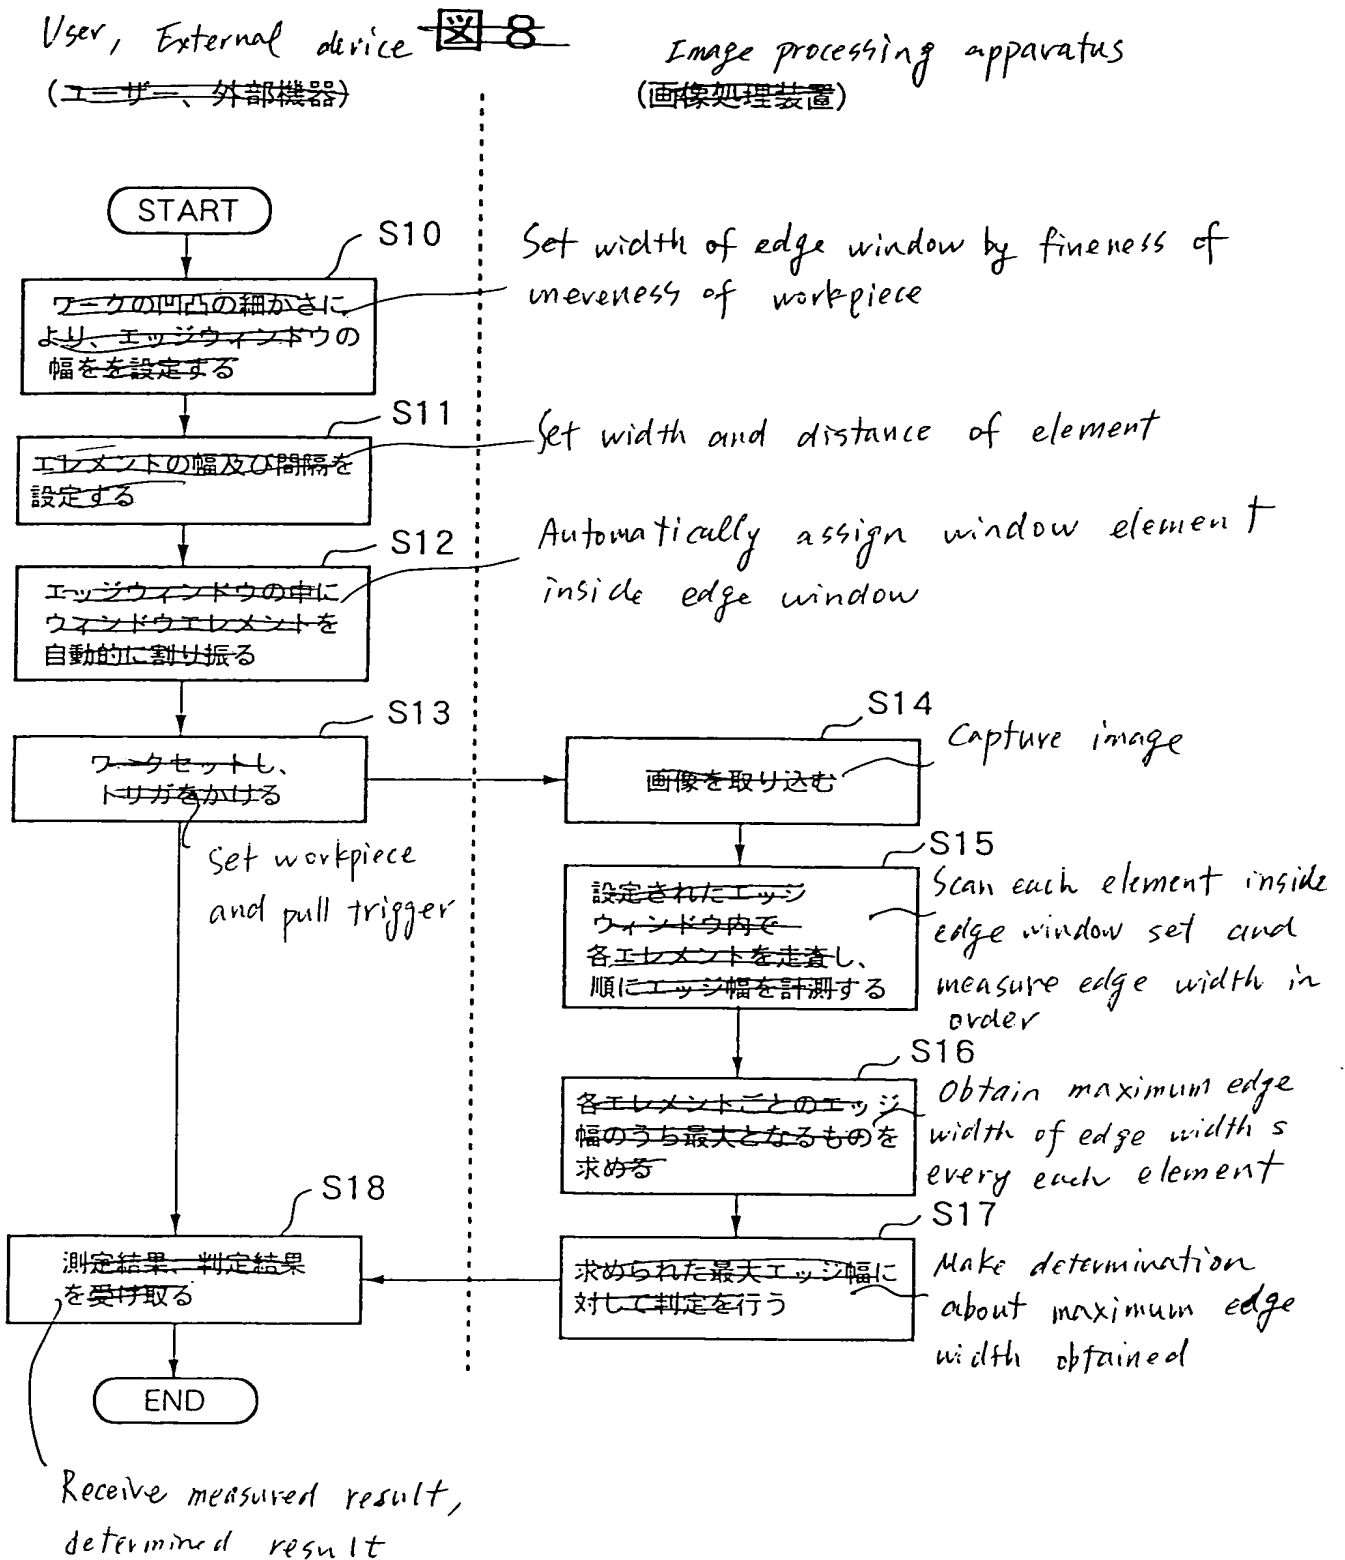 User, External device 図 8
Image processing apparatus
(ユーザー、外部機器)
(画像処理装置)
START
S10
ワークの凹凸の細かさに
より、エッジウィンドウの
幅をを設定する
Set width of edge window by fineness of
uneveness of workpiece
S11
エレメントの幅及び間隔を
設定する
Set width and distance of element
S12
エッジウィンドウの中に
ウィンドウエレメントを
自動的に割り振る
Automatically assign window element
inside edge window
S13
ワークセットし、
トリガをかける
Set workpiece
and pull trigger
S14
画像を取り込む
Capture image
S15
設定されたエッジ
ウィンドウ内で
各エレメントを走査し、
順にエッジ幅を計測する
Scan each element inside
edge window set and
measure edge width in
order
S16
各エレメントごとのエッジ
幅のうち最大となるものを
求める
Obtain maximum edge
width of edge widths
every each element
S17
求められた最大エッジ幅に
対して判定を行う
Make determination
about maximum edge
width obtained
S18
測定結果、判定結果
を受け取る
END
Receive measured result,
determined result